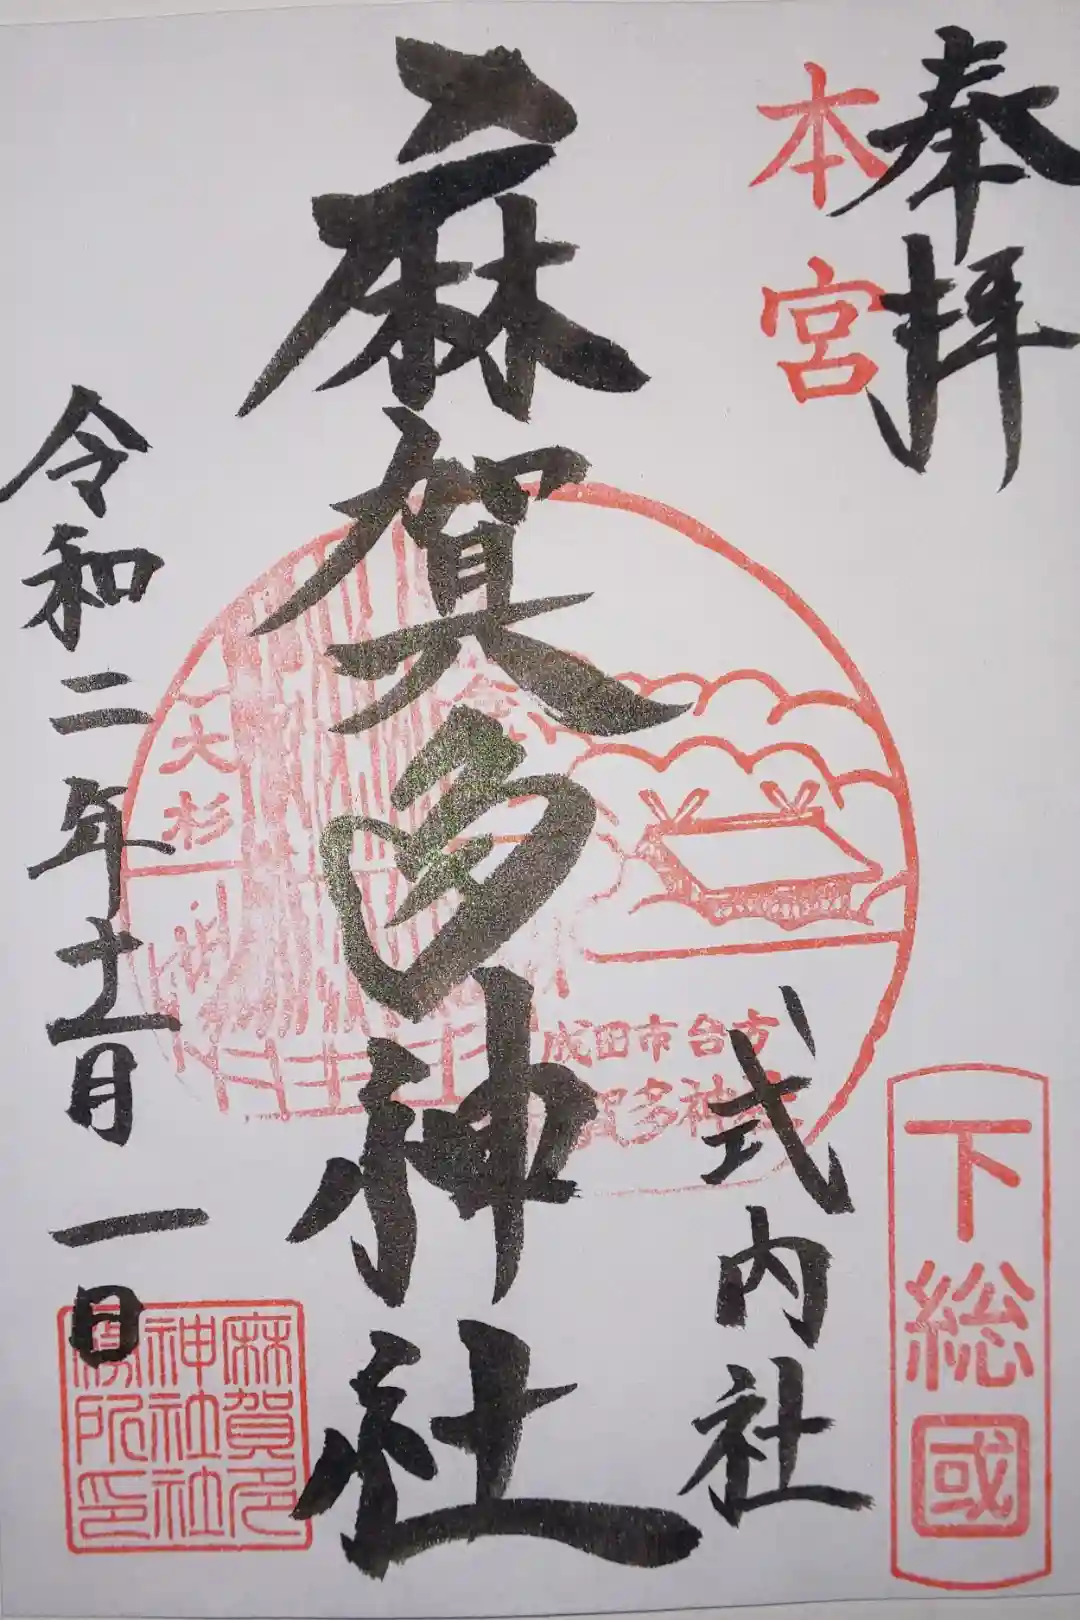 奉拝
本宮
下総國
式内社
麻賀多神社
大杉
成田市台方
賀多神社
令和二年十一月一日
麻賀多
神社社
務所印